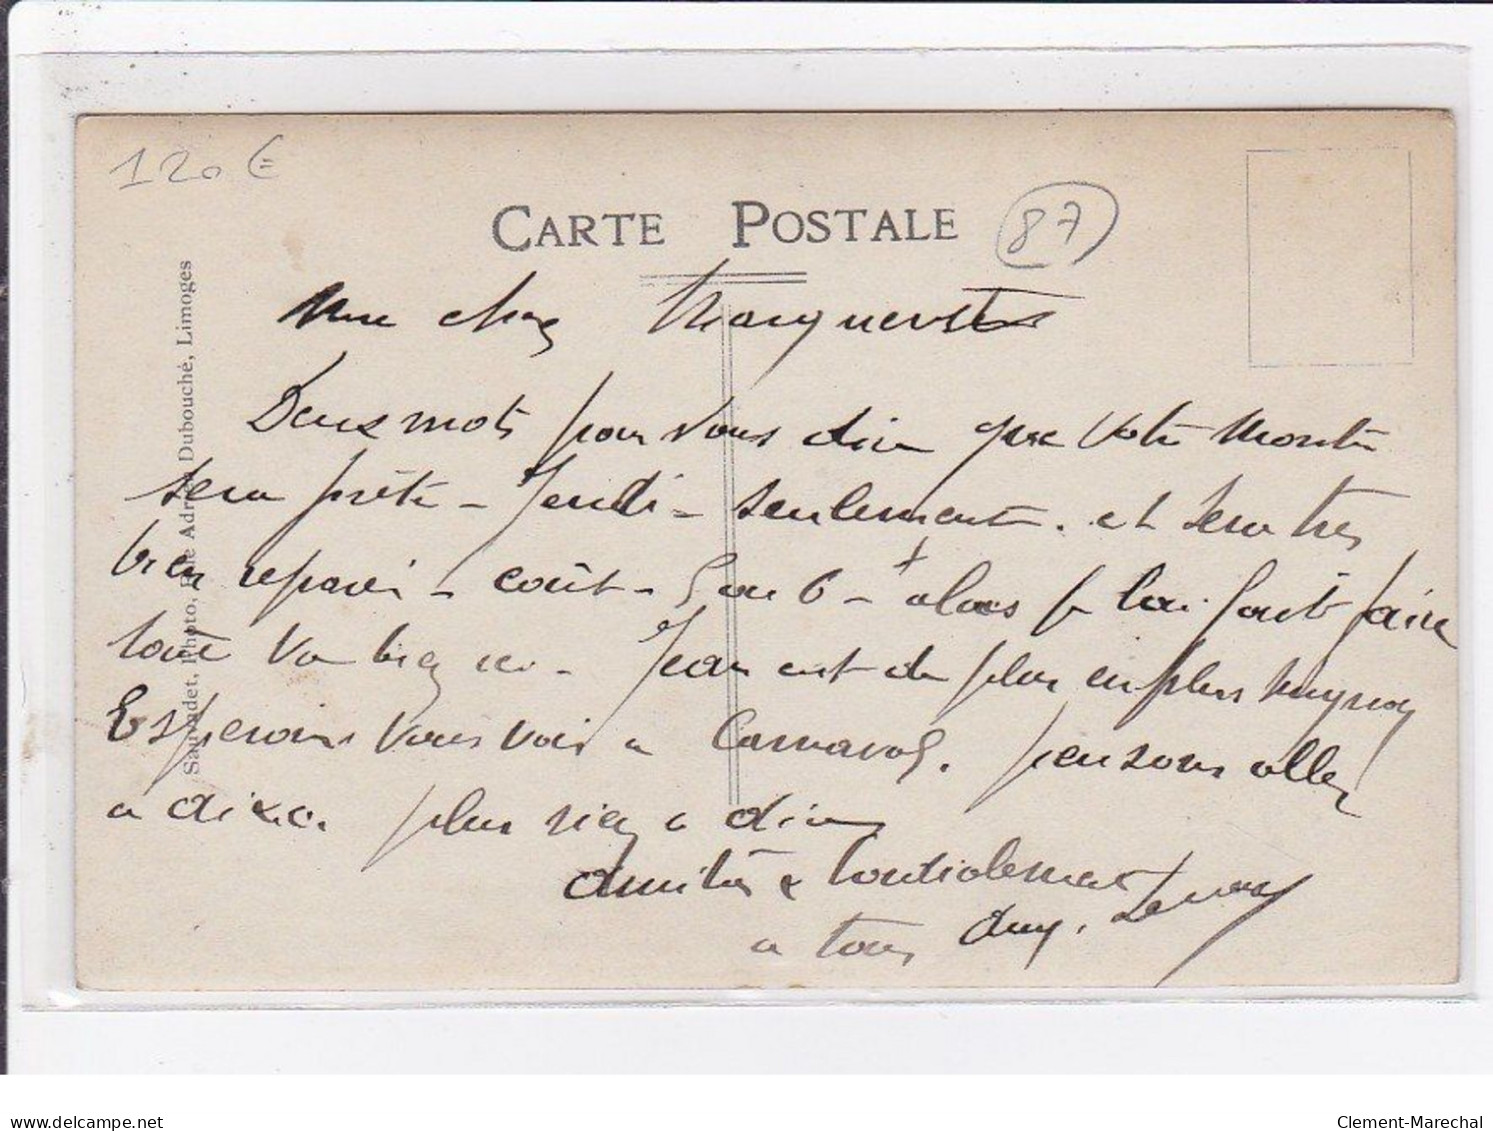 120€
CARTE POSTALE
87
Sagaudet, Photo, Adrien Dubouché, Limoges
Marguerite
Deux mots pour vous dire que votre montre
sera prête - Jeudi - seulement. et sera très
bien réparé - coût - 5 ou 6 - alors faire
toute va bien. Jean est de plus en plus
Esperons vous voir a Carnaval. pensons aller
a dire. plus rien a dire
Amitiés & Cordialement
a tous
delcampe.net
Clement-Marechal